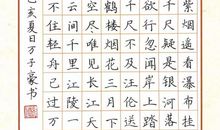 紫烟遥看瀑布挂
尺疑是银河落九
欲行忽闻岸上踏
尺不及汪伦送我
鹤楼烟花三月下
空尽唯见长江天
云间千里江陵一
不住轻舟已过万
己亥夏日万子豪书